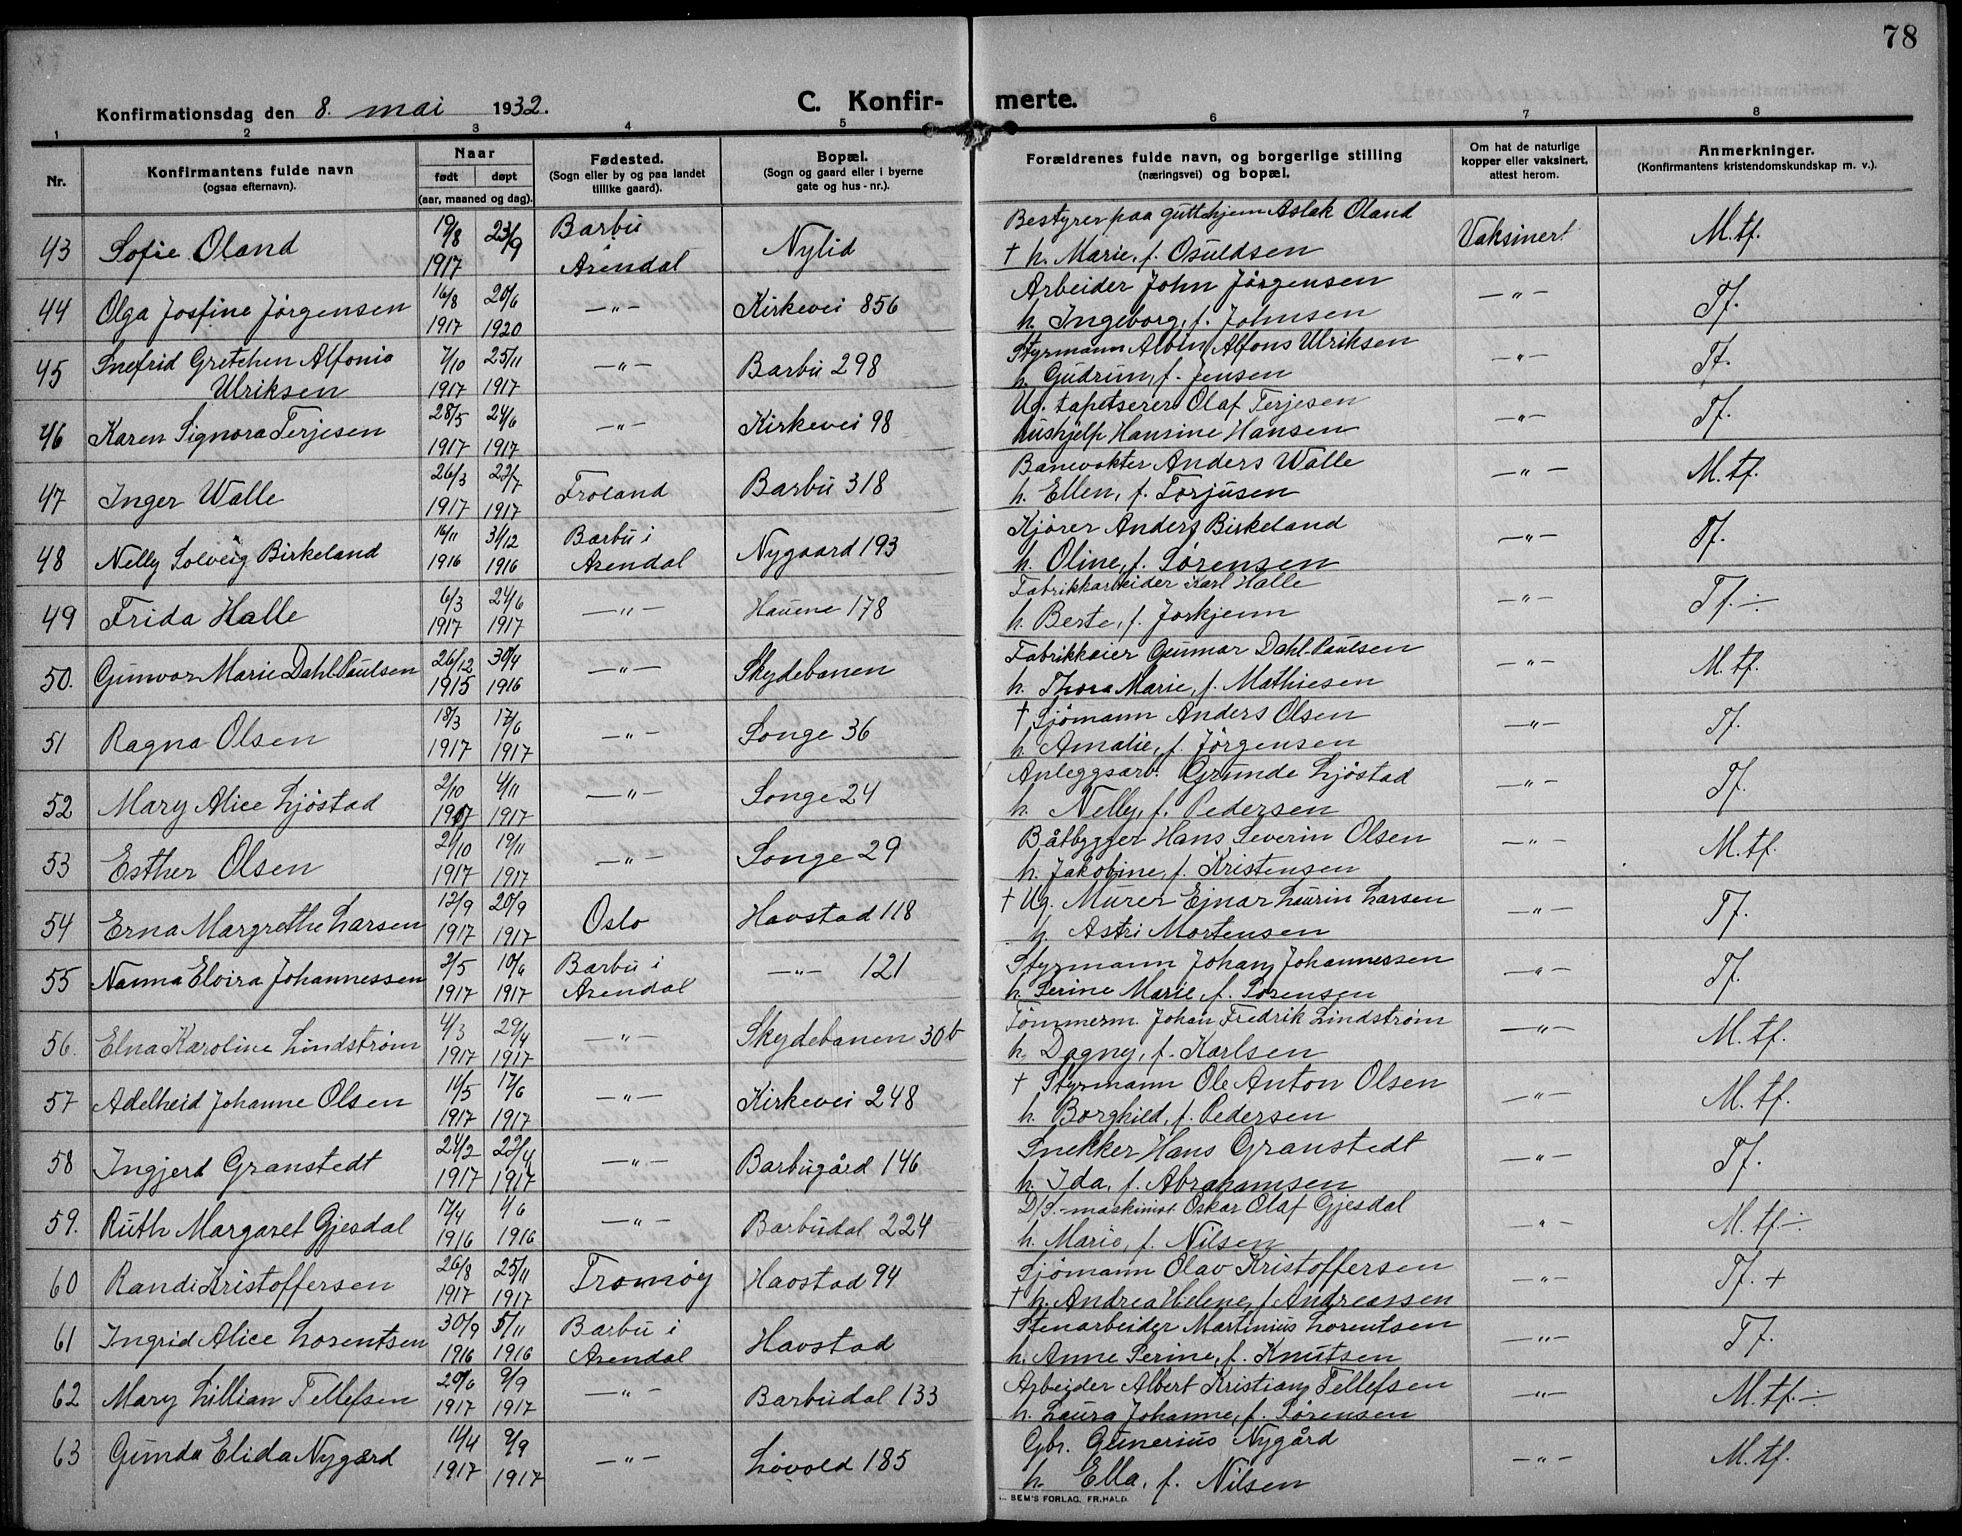 78
Konfirmationsdag den 8. mai 1932. C. Konfirmerte.
1 2 3 4 5 6 7 8
Nr. | Konfirmantens fulde navn (ogsaa efternavn). | Naar født døpt (aar, maaned og dag). | Fødested. (Sogn eller by og paa landet tillike gaard). | Bopæl. (Sogn og gaard eller i byerne gate og hus-nr.). | Forældrenes fulde navn, og borgerlige stilling (næringsvei) og bopæl. | Om hat de naturlige kopper eller vaksinert, attest herom. | Anmerkninger. (Konfirmantens kristendomskundskap m. v.).
43 Sofie Oland 19/8 1917 23/9 Barbu Arendal Nylid Bestyrer paa gutthjem Aslak Oland
† h. Marie, f. Osuldsen Vaksinert M.tf.
44 Olga Josfine Jørgensen 16/8 1917 20/6 1920 —"— Kirkevei 856 Arbeider John Jørgensen
h. Ingeborg, f. Johnsen —"— Tf.
45 Snefrid Gretchen Alfonio Ulriksen 7/10 1917 25/11 1917 —"— Barbu 298 Styrmann Albin Alfons Ulriksen
h. Gudrun, f. Jensen —"— Tf.
46 Karen Signora Terjesen 28/5 1917 24/6 1917 —"— Kirkevei 98 Ug. tapetserer Olaf Terjesen
hushjelp Hansine Hansen —"— Tf.
47 Inger Walle 26/3 1917 22/7 1917 Froland Barbu 318 Banevokter Anders Walle
h. Ellen, f. Torjusen —"— M.tf.
48 Nelly Solveig Birkeland 16/11 1916 31/12 1916 Barbu i Arendal Nygaard 193 Kjører Anders Birkeland
h. Oline, f. Sørensen —"— Tf.
49 Frida Halle 6/3 1917 24/6 1917 —"— Hauene 178 Fabrikkarbeider Karl Halle
h. Berte, f. Jorkjenn —"— Tf. ÷
50. Gunvor Marie Dahl-Paulsen 26/12 1915 30/4 1916 —"— Skydebanen Fabrikkeier Gunnar Dahl-Paulsen
h. Thora Marie, f. Mathiesen —"— M.tf.
51 Ragna Olsen 18/3 1917 17/6 1917 —"— Songe 36 † Sjømann Anders Olsen
h. Amalie, f. Jørgensen —"— Tf.
52 Mary Alice Ljøstad 2/10 1917 4/11 1917 —"— Songe 24 Anleggsarb. Grunde Ljøstad
h. Nelly, f. Pedersen —"— Tf.
53 Esther Olsen 21/10 1917 19/11 1917 —"— Songe 29 Båtbygger Hans Severin Olsen
h. Jakobine, f. Kristensen —"— M.tf.
54 Erna Margrethe Larsen 12/9 1917 20/9 1917 Oslo Havstad 118 † Ug. Murer Ejnar Laurin Larsen
h. Astri Mortensen —"— Tf.
55 Nanna Elvira Johannessen 2/5 1917 10/6 1917 Barbu i Arendal —"— 121 Styrmann Johan Johannessen
h. Serine Marie, f. Sørensen —"— Tf.
56. Elna Karoline Lindstrøm 4/3 1917 29/4 1917 —"— Skydebanen 30b Tømmerm. Johan Fredrik Lindstrøm
h. Dagny, f. Karlsen —"— M.tf.
57 Adelheid Johanne Olsen 11/5 1917 17/6 1917 —"— Kirkevei 248 † Styrmann Ole Anton Olsen
h. Borghild, f. Pedersen —"— M.tf.
58 Ingjerd Granstedt 24/2 1917 22/4 1917 —"— Barbugård 146 Snekker Hans Granstedt
h. Ida, f. Abrahamsen —"— Tf.
59. Ruth Margaret Gjesdal 17/4 1916 4/6 1916 —"— Barbudal 224 D/S.-maskinist Oskar Olaf Gjesdal
h. Marie, f. Nilsen —"— M.tf. ÷
60 Randi Kristoffersen 26/8 1917 25/11 1917 Tromøy Havstad 94 Sjømann Olav Kristoffersen
† h. Andrea Helene, f. Andreassen —"— Tf. +
61 Ingrid Alice Lorentsen 30/9 1916 5/11 1916 Barbu i Arendal Havstad Stenarbeider Martinius Lorentsen
h. Anne Serine, f. Knutsen —"— Tf.
62 Mary Lillian Tellefsen 20/6 1917 9/9 1917 —"— Barbudal 133 Arbeider Albert Kristian Tellefsen
h. Laura Johanne, f. Sørensen —"— M.tf. ÷
63 Gunda Elida Nygård 11/4 1917 9/9 1917 —"— Løvold 185 Gbr. Gunerius Nygård
h. Ella, f. Nilsen —"— M.tf.
SEM'S FORLAG, FR.HALD.